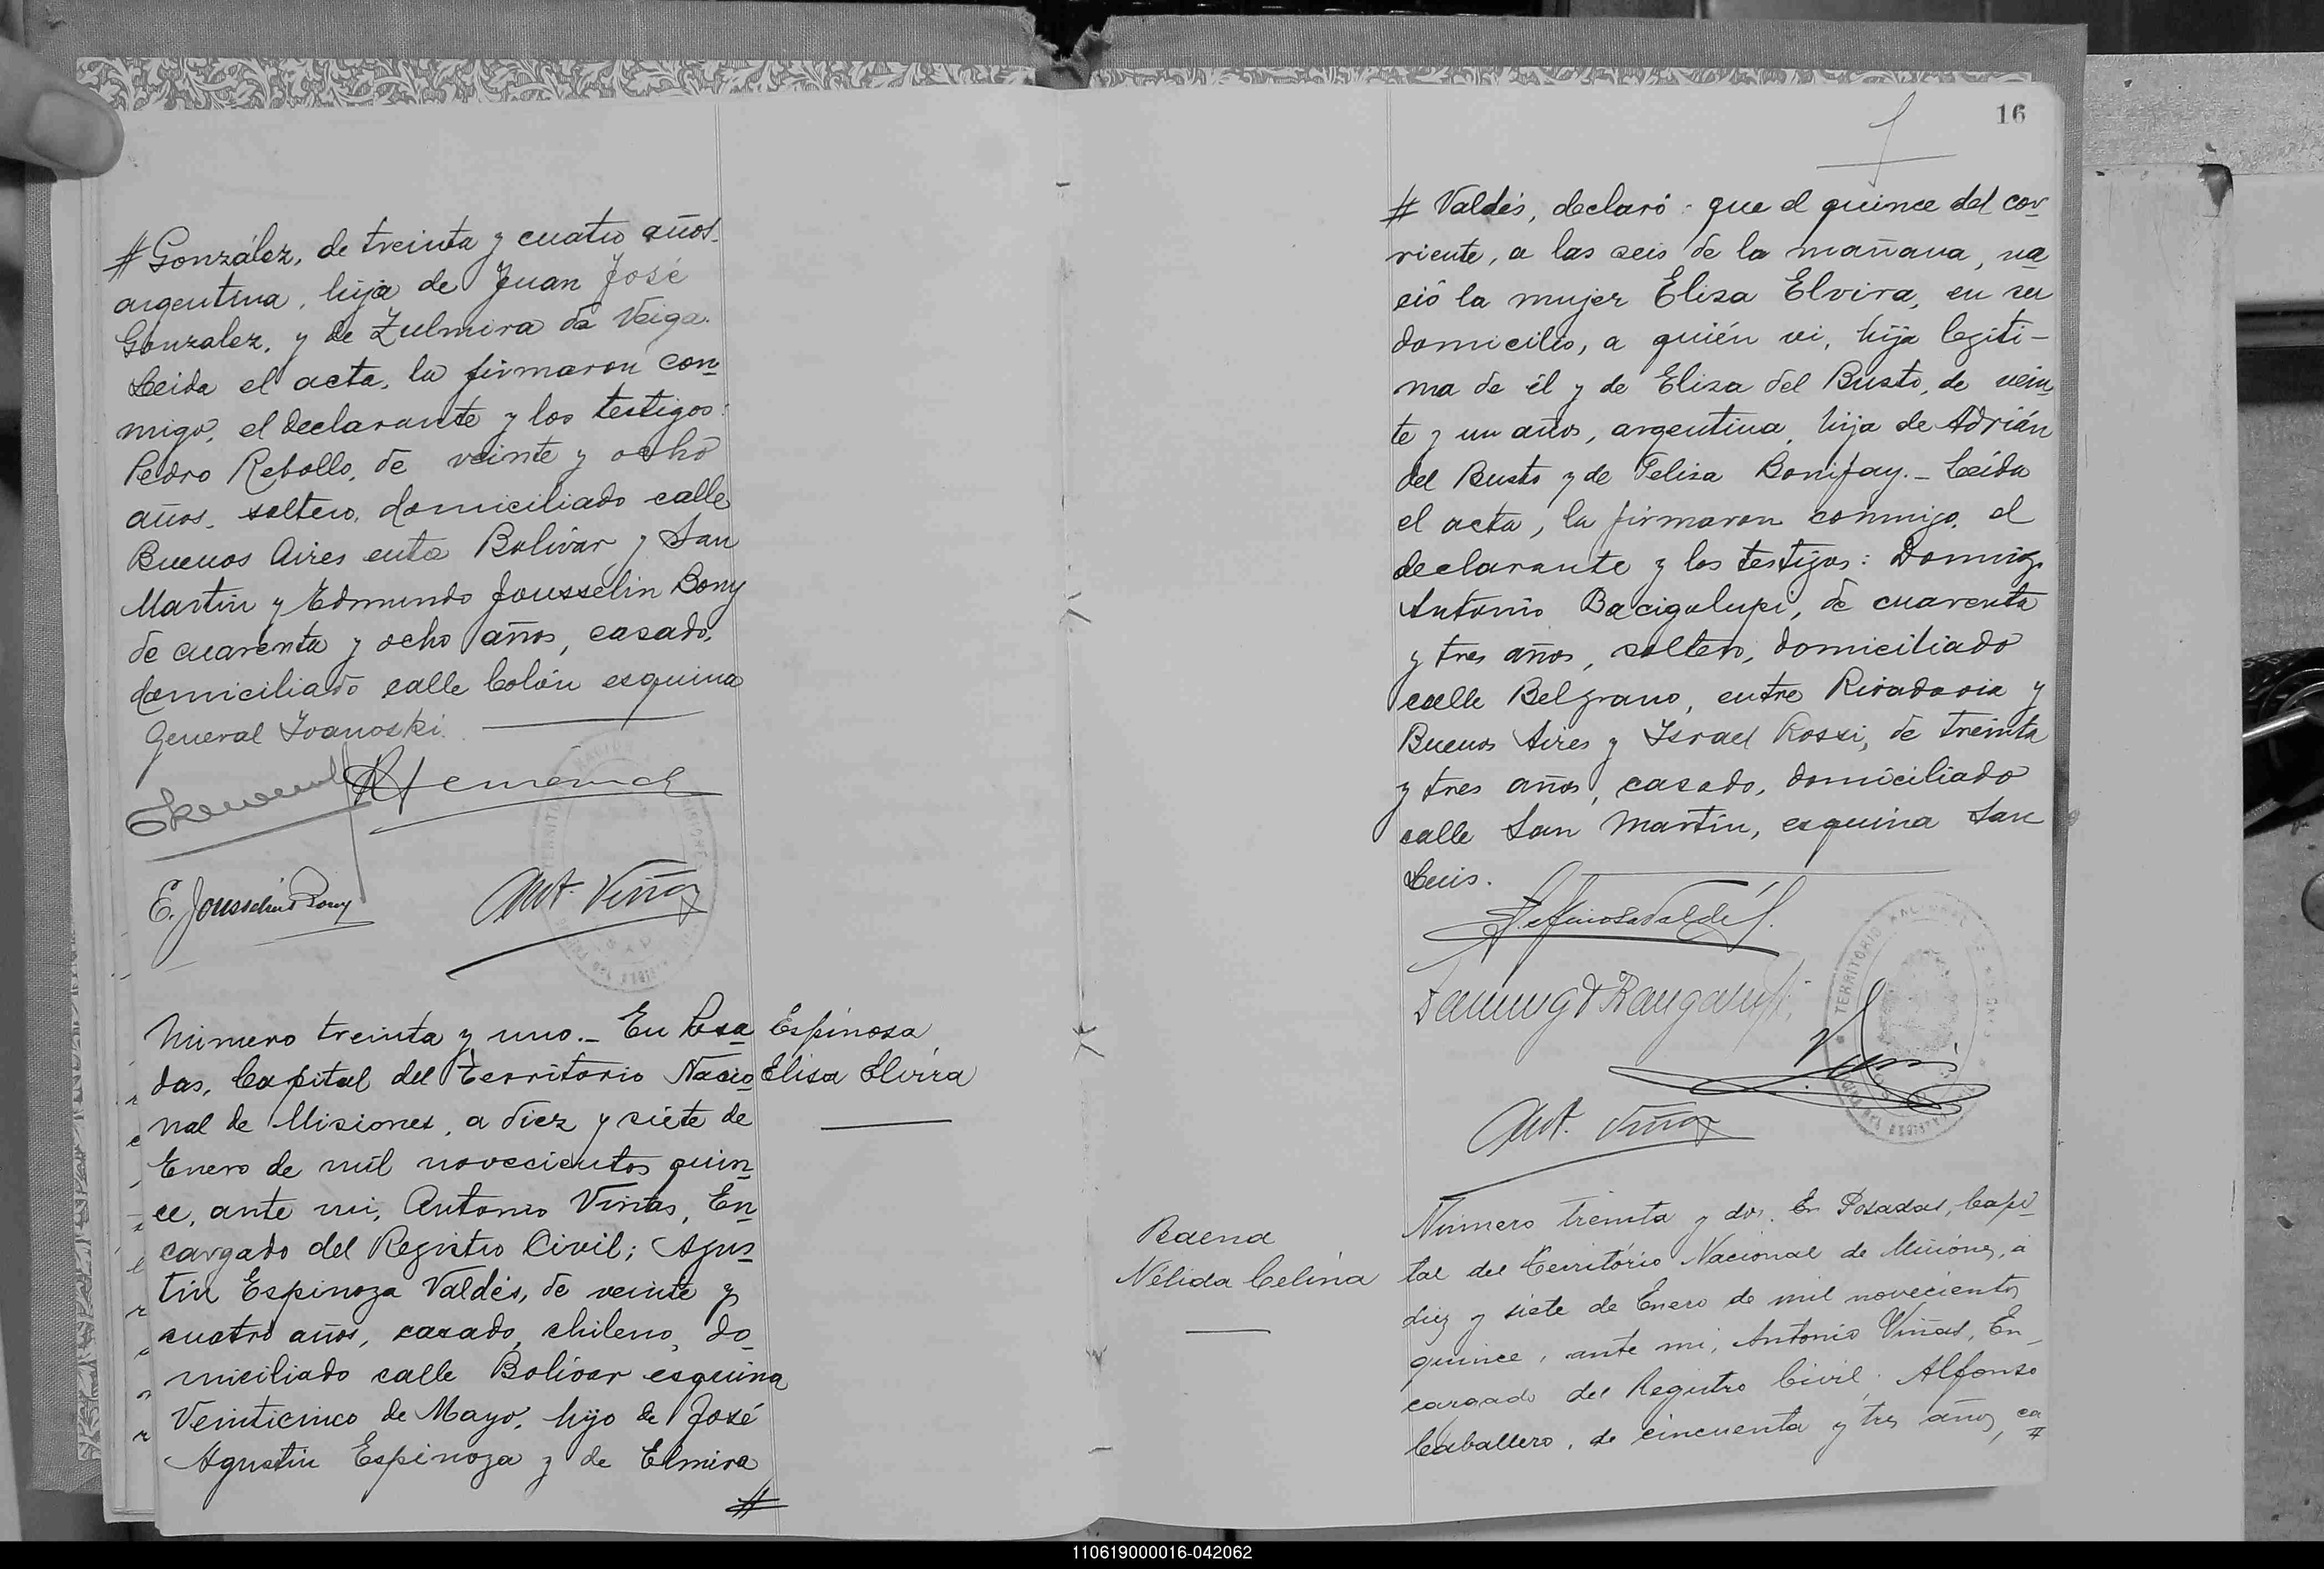 # González, de treinta y cuatro años.
argentina, hija de Juan José
Gonzalez, y de Zulmira da Veiga.
Leida el acta, la firmaron con
migo, el declarante y los testigos:
Pedro Rebollo, de veinte y ocho
años, soltero, domiciliado calle
Buenos Aires entre Bolivar y San
Martin y Edmundo Jousselin Bony
de cuarenta y ocho años, casado,
domiciliado calle Colón esquina
General Ivanoski.
E. Jousselin Bony
Ant. Viñas
Número treinta y uno._ En Posa
das, Capital del territorio Nacio
nal de Misiones, a diez y siete de
Enero de mil novecientos quin
ce, ante mi, Antonio Viñas, En
cargado del Registro Civil; Agus
tin Espinoza Valdés, de veinte y
cuatro años, casado, chileno, do
miciliado calle Bolívar esquina
Veinticinco de Mayo, hijo de José
Agustin Espinoza y de Elmira
#
Espinosa
Elisa Elvira
16
# Valdés, declaró: que el quince del cor
riente, a las seis de la mañana, na
ció la mujer Elisa Elvira, en su
domicilio, a quién vi, hija legiti-
ma de él y de Elisa del Busto, de vein
te y un años, argentina, hija de Adrián
del Busto y de Felisa Bonifay._ Leída
el acta, la firmaron conmigo, el
declarante y los testigos: Domingo
Antonio Bacigalupi, de cuarenta
y tres años, soltero, domiciliado
calle Belgrano, entre Rivadavia y
Buenos Aires y Israel Rossi, de treinta
y tres años, casado, domiciliado
calle San Martin, esquina San
Luis.
A. Espinosa Valdés.
Ant. Viñas
Número treinta y dos. En Posadas, Capi
tal del Territorio Nacional de Misiones, a
diez y siete de Enero de mil novecientos
quince, ante mi, Antonio Viñas, En
cargado del Registro Civil; Alfonso
Caballero, de cincuenta y tres años, ca
#
Baena
Nélida Celina
TERRITORIO NACIONAL DE MISIONES
110619000016-042062